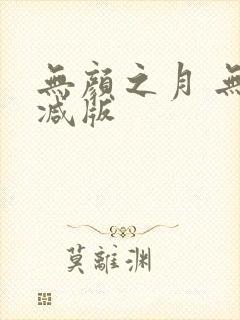 無顏之月 無
减版
莫離渊